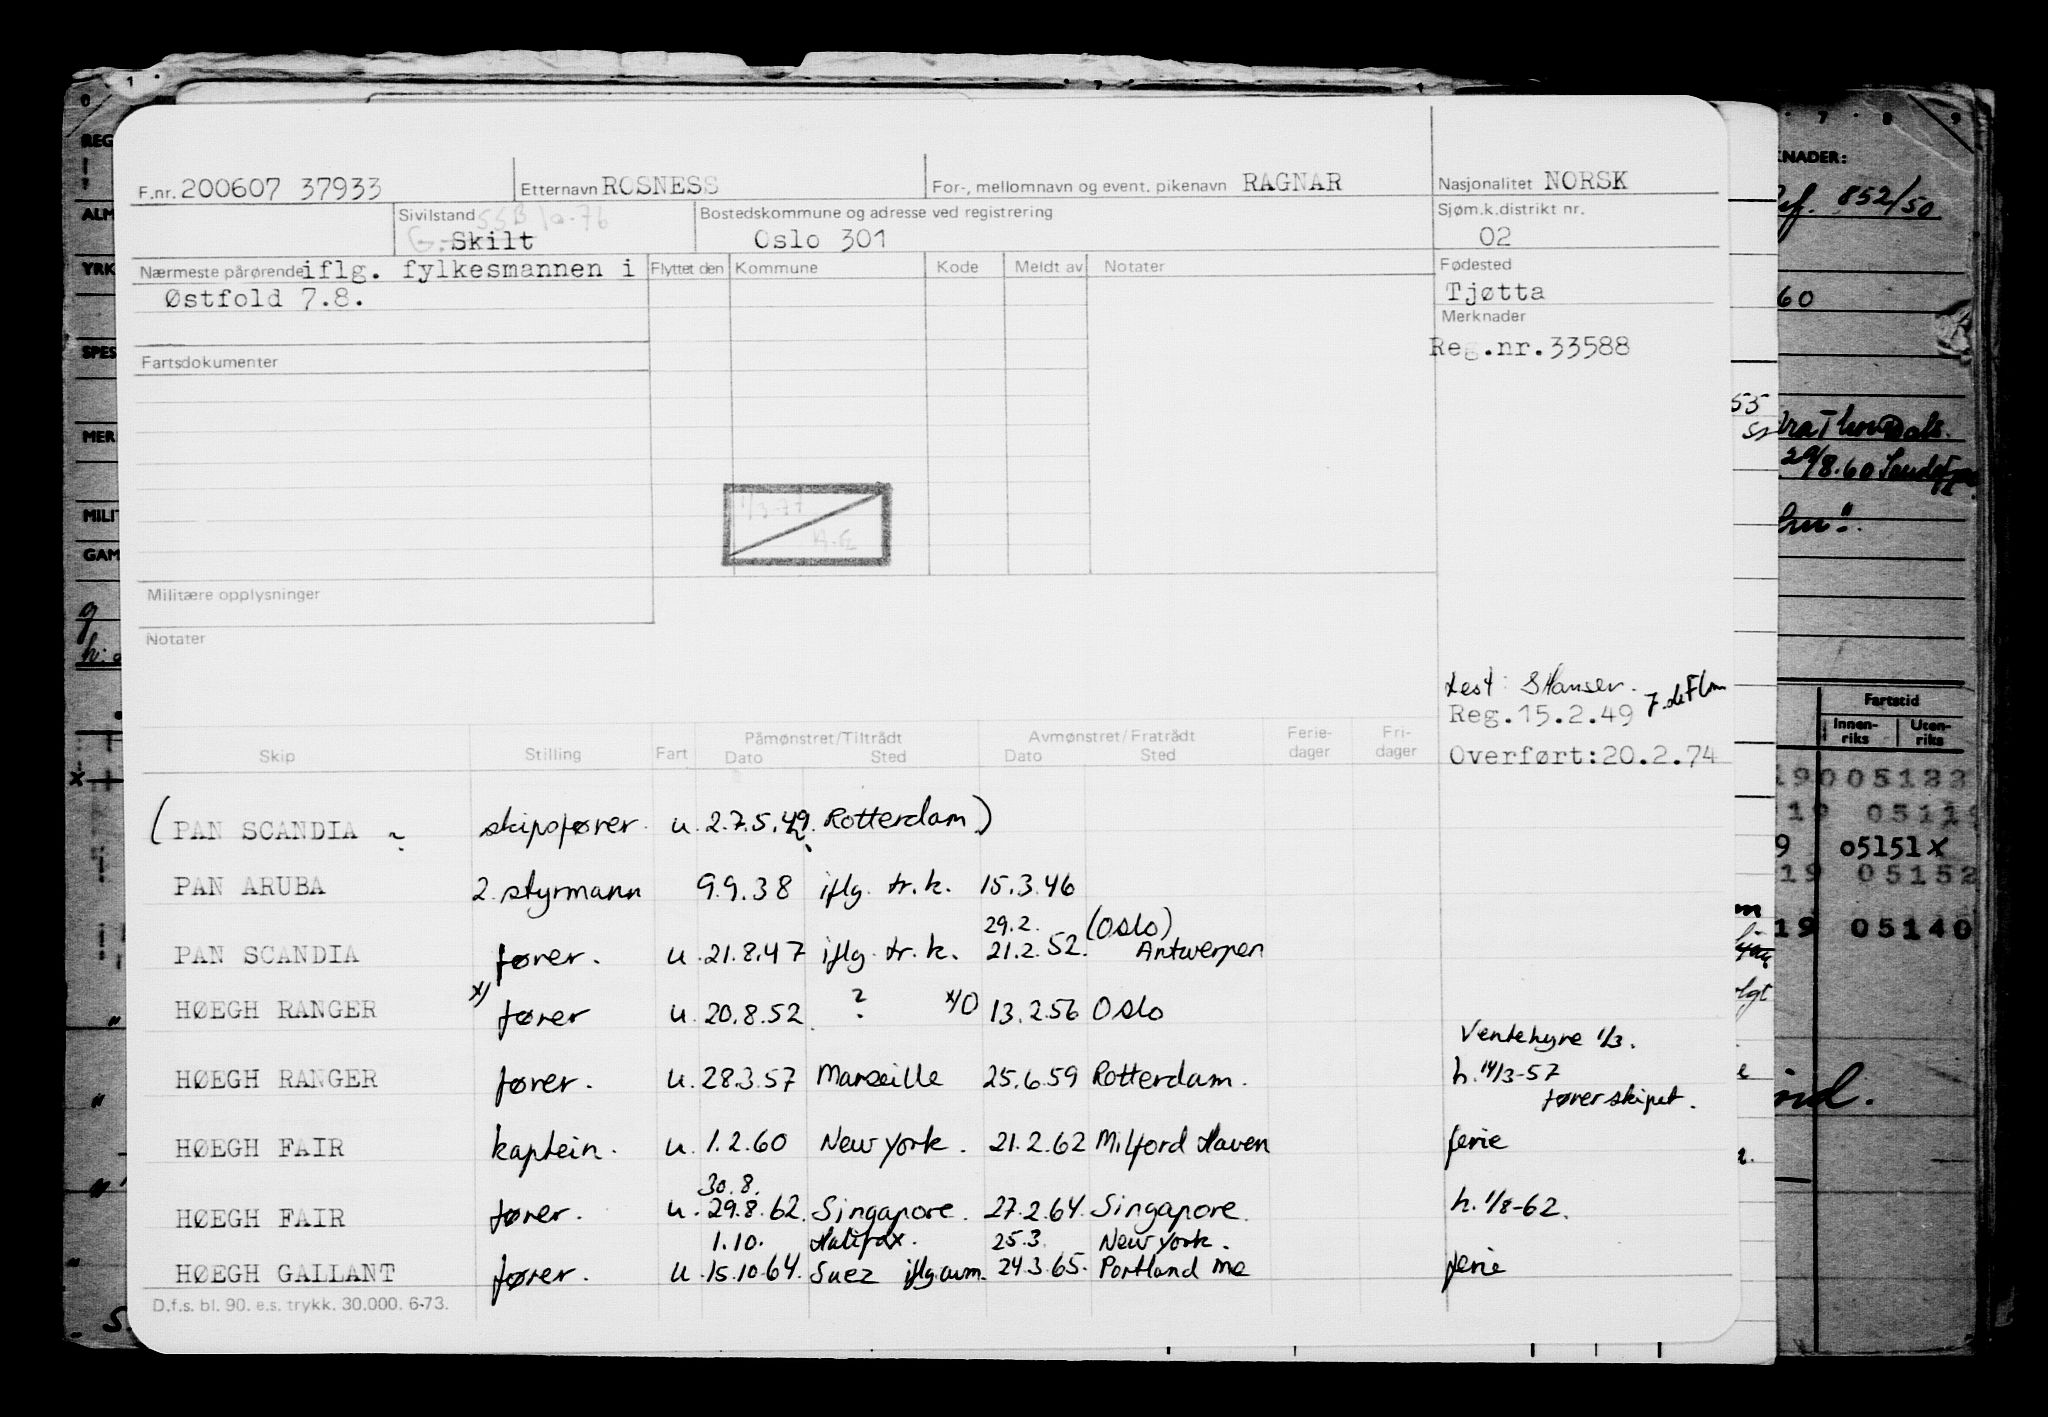 F.nr. 200607 37933 Etternavn ROSNESS For-, mellomnavn og event. pikenavn RAGNAR Nasjonalitet NORSK
Sivilstand G.-Skilt SSB 10-76 Bostedskommune og adresse ved registrering Oslo 301 Sjøm.k.distrikt nr. 02
Nærmeste pårørende iflg. fylkesmannen i
Østfold 7.8.
Flyttet den Kommune Kode Meldt av Notater
Fødested
Tjøtta
Merknader
Reg.nr.33588
Fartsdokumenter
1/3-77
Militære opplysninger
Notater
test: S Hansen.
Reg.15.2.49
Overført:20.2.74
Skip Stilling Fart Påmønstret/Tiltrådt Dato Sted Avmønstret/Fratrådt Dato Sted Ferie-dager Fri-dager
(PAN SCANDIA skipsfører. u. 2.7.5.49. Rotterdam)
PAN ARUBA 2. styrmann 9.9.38 iflg. tr.k. 15.3.46
29.2. (Oslo)
PAN SCANDIA fører. u. 21.8.47 iflg. tr.k. 21.2.52. Antwerpen
HØEGH RANGER x) fører u. 20.8.52. ? x) 0 13.2.56 Oslo
Ventehyre 1/3.
HØEGH RANGER fører. u. 28.3.57 Marseille 25.6.59 Rotterdam. h. 14/3-57
fører skipet.
HØEGH FAIR kaptein. u. 1.2.60 New York. 21.2.62 Milford Haven ferie
30.8.
HØEGH FAIR fører. u. 29.8.62. Singapore. 27.2.64. Singapore. h. 1/8-62.
1.10. Halifax. 25.3. New York.
HØEGH GALLANT fører. u. 15.10.64. Suez iflg.avm. 24.3.65. Portland me ferie
D.f.s. bl. 90. e.s. trykk. 30.000. 6-73.
REG
ALM
YRK
SPES
MER
MILIT
GAM
KNADER:
852/50
60
55
29/8.60
Fartstid
Innen-riks Uten-riks
19005122
19 0511
9 05151x
19 05152
19 05140